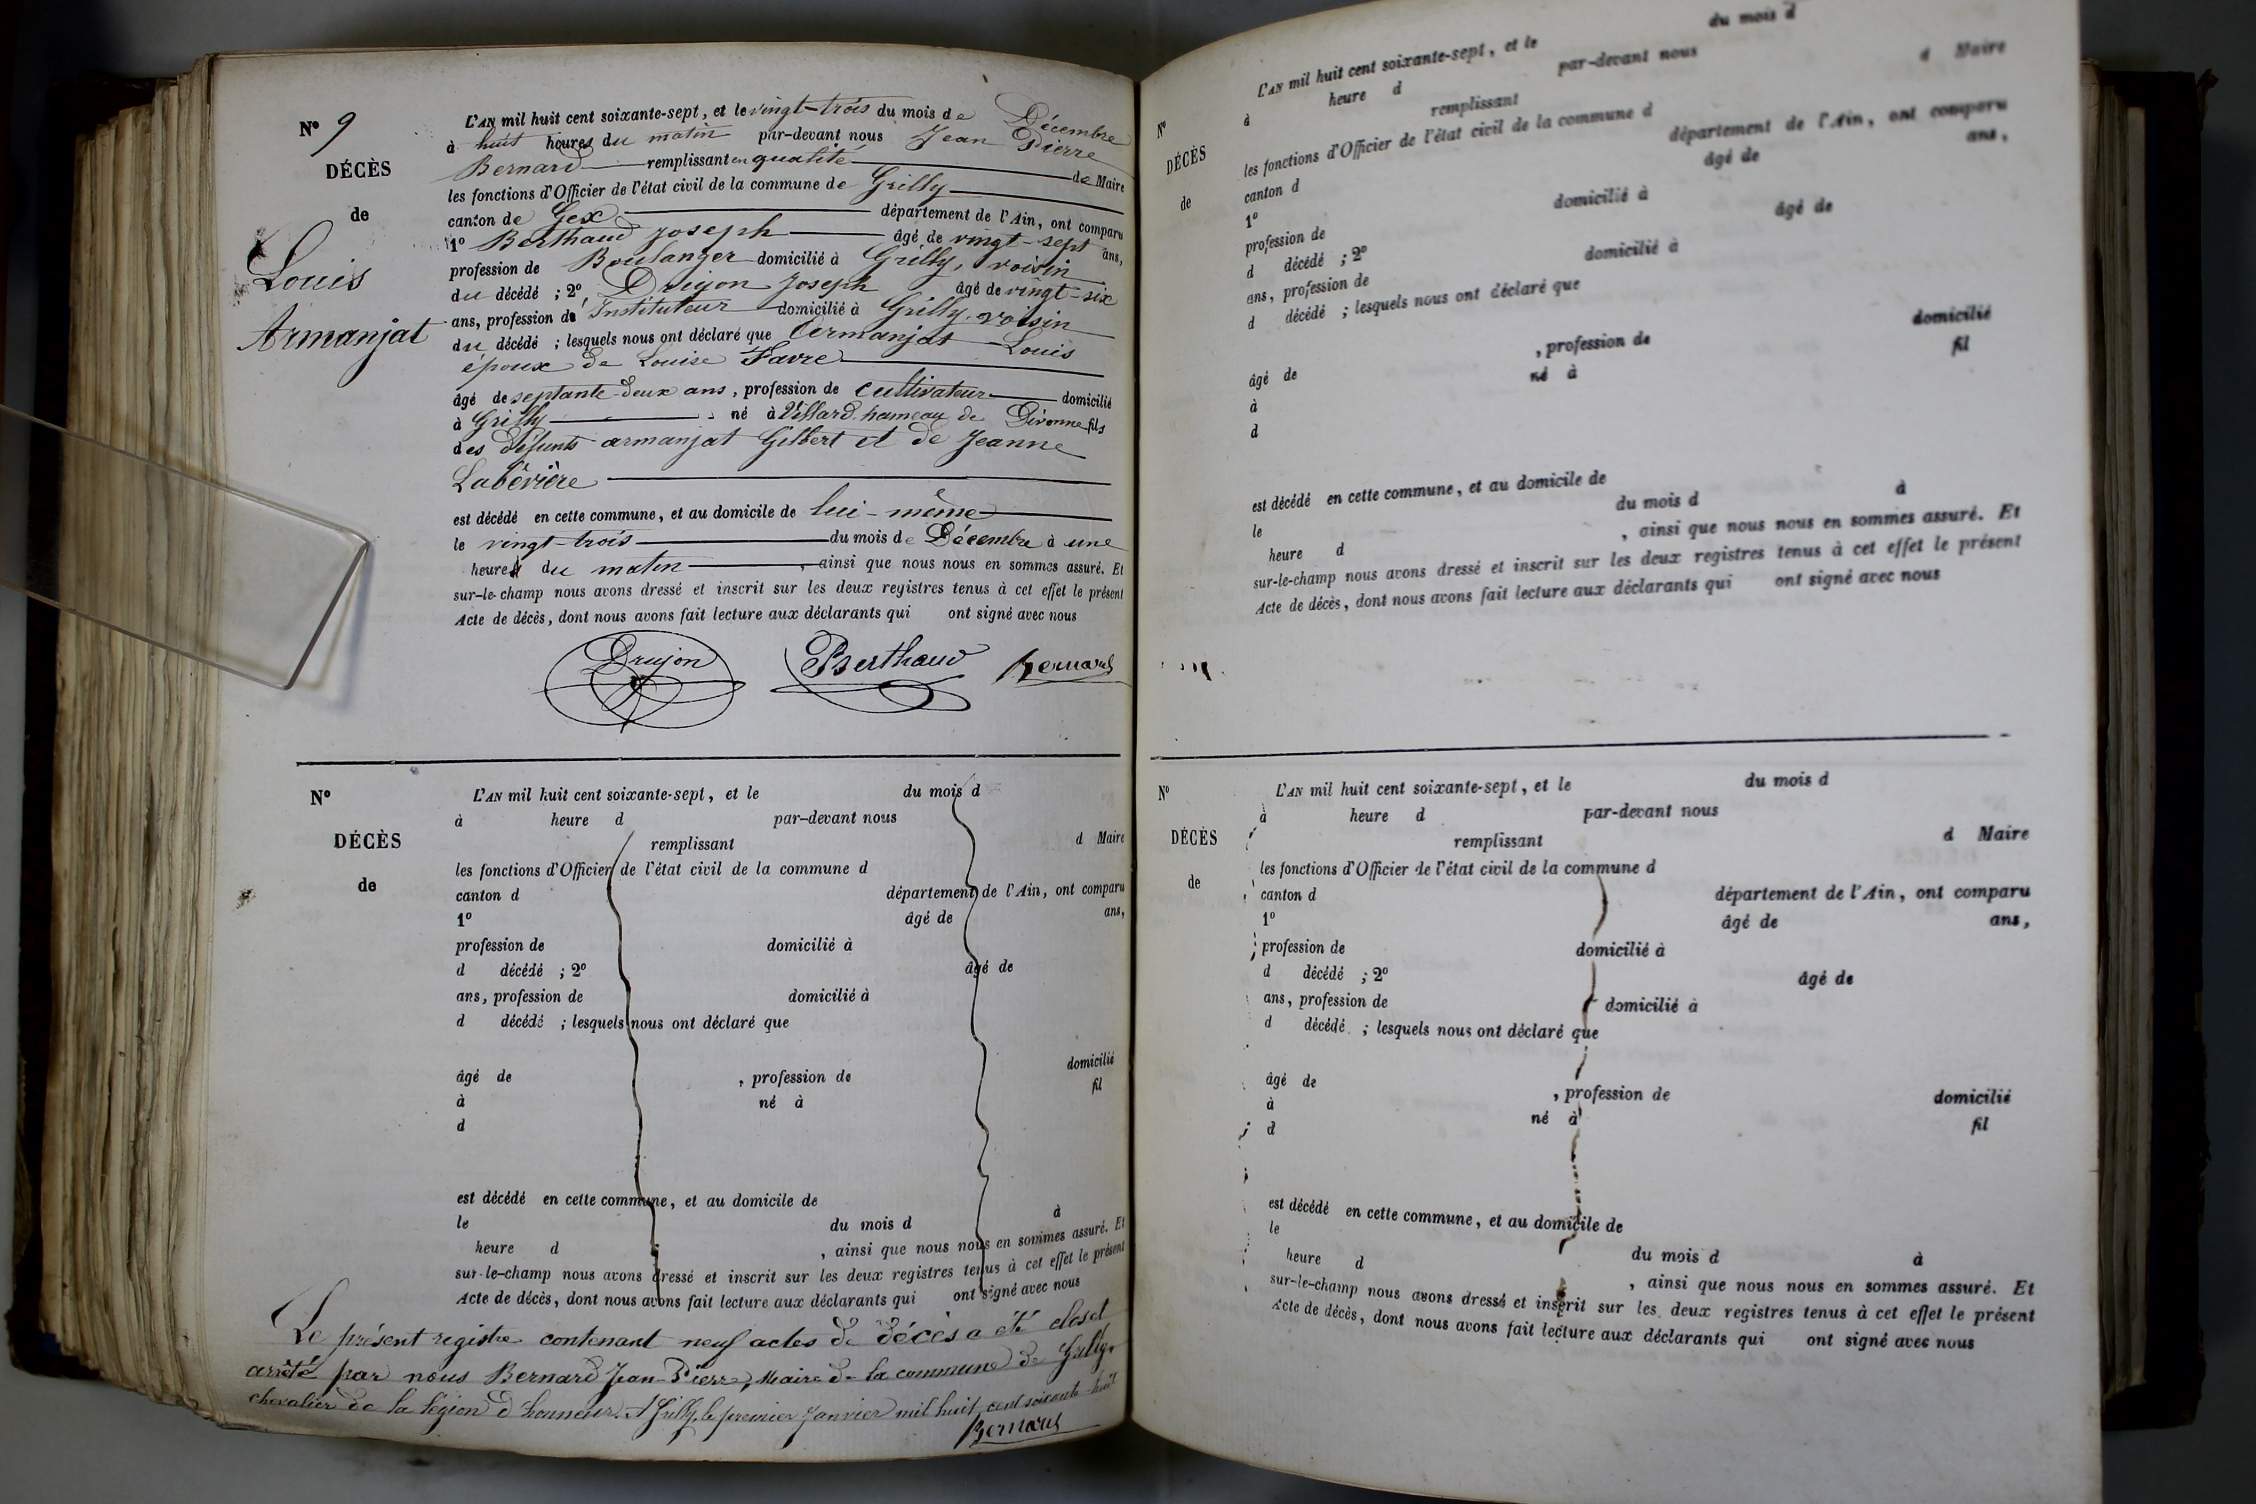 N° 9
DÉCÈS
de
Louis
Armanjat
L'AN mil huit cent soixante-sept, et le vingt-trois du mois de Décembre
à huit heures du matin par-devant nous Jean Pierre
Bernard remplissant en qualité de Maire
les fonctions d'Officier de l'état civil de la commune de Grilly
canton de Gex département de l'Ain, ont comparu
1° Berthaud Joseph âgé de vingt-sept ans,
profession de Boulanger domicilié à Grilly, voisin
du décédé ; 2° Drujon Joseph âgé de vingt-six
ans, profession de Instituteur domicilié à Grilly, voisin
du décédé ; lesquels nous ont déclaré que Armanjat Louis
époux de Louise Favre
âgé de septante-deux ans, profession de cultivateur domicilié
à Grilly né à Villard hameau de Divonne fils
des défunts armanjat Gilbert et de Jeanne
Labévière
est décédé en cette commune, et au domicile de lui-même
le vingt-trois du mois de Décembre à une
heure du matin, ainsi que nous nous en sommes assuré. Et
sur-le-champ nous avons dressé et inscrit sur les deux registres tenus à cet effet le présent
Acte de décès, dont nous avons fait lecture aux déclarants qui ont signé avec nous
Drujon Berthaud Bernard
N°
DÉCÈS
de
L'AN mil huit cent soixante-sept, et le du mois d
à heure d par-devant nous
remplissant d Maire
les fonctions d'Officier de l'état civil de la commune d
canton d département de l'Ain, ont comparu
1° âgé de ans,
profession de domicilié à
d décédé ; 2° âgé de
ans, profession de domicilié à
d décédé ; lesquels nous ont déclaré que
âgé de , profession de domicilié
à né à fil
d
est décédé en cette commune, et au domicile de
le du mois d à
heure d , ainsi que nous nous en sommes assuré. Et
sur-le-champ nous avons dressé et inscrit sur les deux registres tenus à cet effet le présent
Acte de décès, dont nous avons fait lecture aux déclarants qui ont signé avec nous
Le présent registre contenant neuf actes de décès a été clos et
arrêté par nous Bernard Jean-Pierre, Maire de la commune de Grilly,
chevalier de la légion d'honneur. A Grilly, le premier Janvier mil huit cent soixante-huit
Bernard
N°
DÉCÈS
de
L'AN mil huit cent soixante-sept, et le du mois d
à heure d par-devant nous
remplissant d Maire
les fonctions d'Officier de l'état civil de la commune d
canton d département de l'Ain, ont comparu
1° âgé de ans,
profession de domicilié à
d décédé ; 2° âgé de
ans, profession de domicilié à
d décédé ; lesquels nous ont déclaré que
âgé de , profession de domicilié
à né à fil
d
est décédé en cette commune, et au domicile de
le du mois d à
heure d , ainsi que nous nous en sommes assuré. Et
sur-le-champ nous avons dressé et inscrit sur les deux registres tenus à cet effet le présent
Acte de décès, dont nous avons fait lecture aux déclarants qui ont signé avec nous
N°
DÉCÈS
de
L'AN mil huit cent soixante-sept, et le du mois d
à heure d par-devant nous
remplissant d Maire
les fonctions d'Officier de l'état civil de la commune d
canton d département de l'Ain, ont comparu
1° âgé de ans,
profession de domicilié à
d décédé ; 2° âgé de
ans, profession de domicilié à
d décédé ; lesquels nous ont déclaré que
âgé de , profession de domicilié
à né à fil
d
est décédé en cette commune, et au domicile de
le du mois d à
heure d , ainsi que nous nous en sommes assuré. Et
sur-le-champ nous avons dressé et inscrit sur les deux registres tenus à cet effet le présent
Acte de décès, dont nous avons fait lecture aux déclarants qui ont signé avec nous